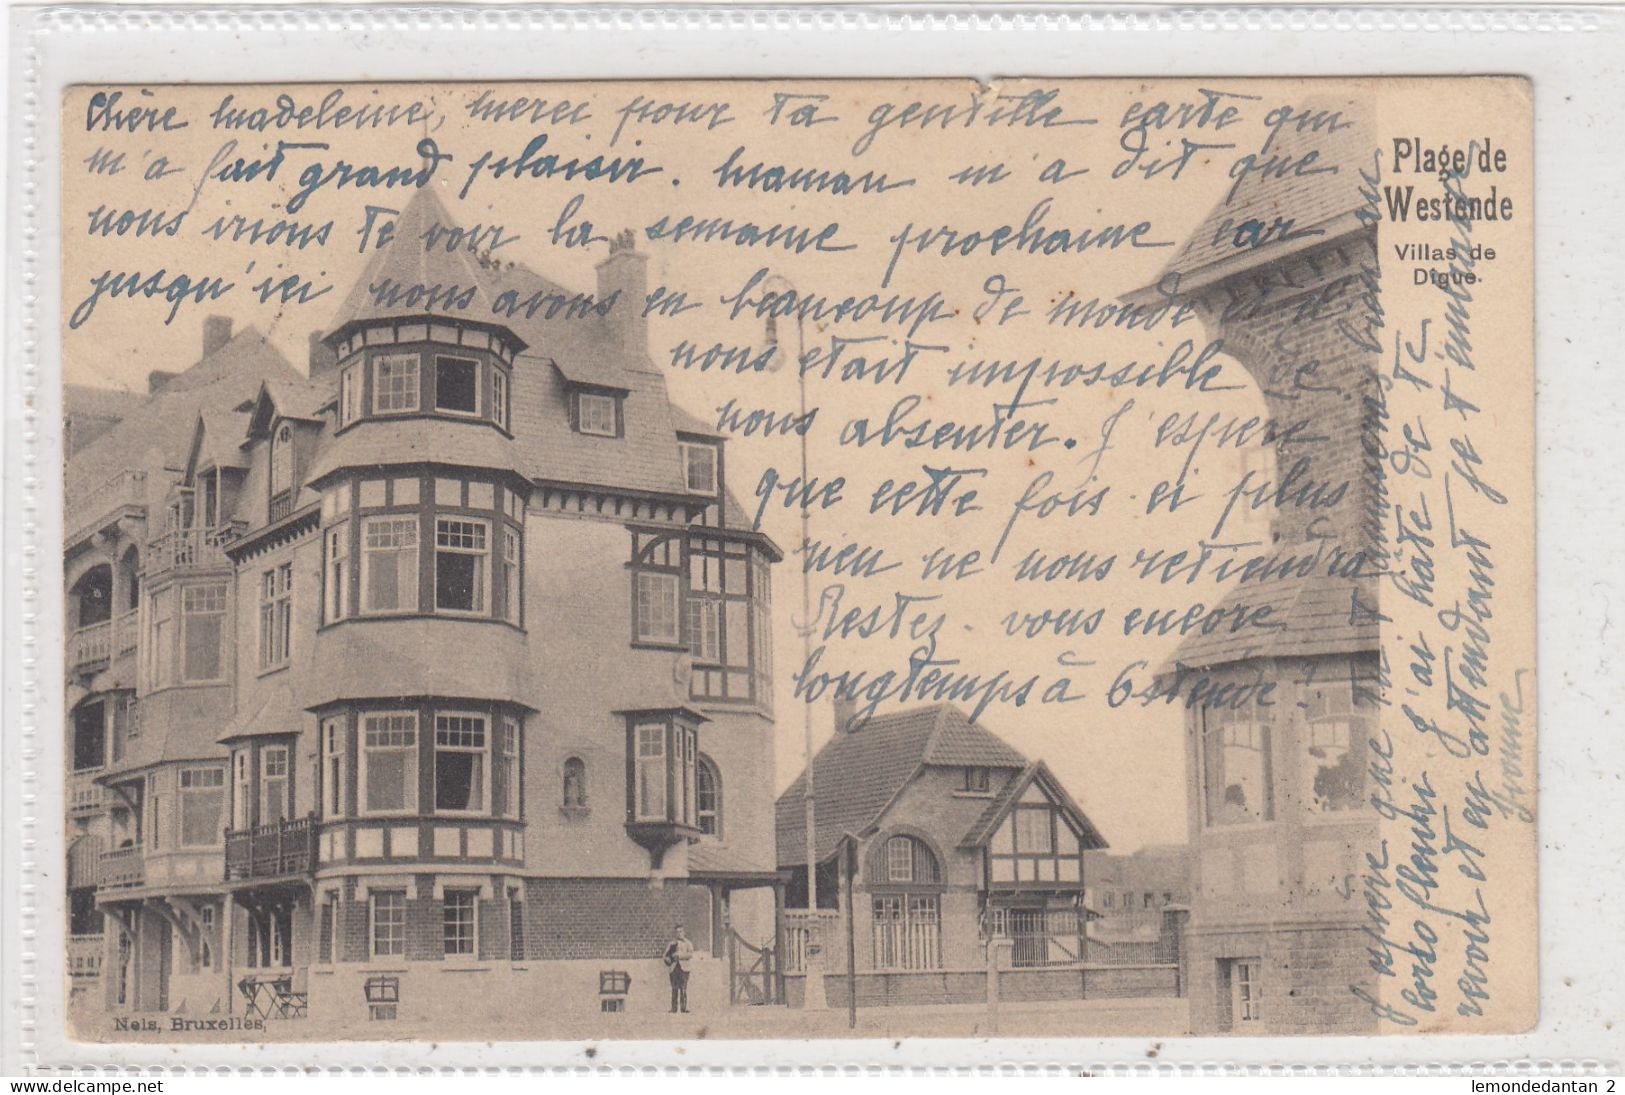 Chère Madeleine, merci pour ta gentille carte qui
m'a fait grand plaisir. Maman m'a dit que
nous irions te voir la semaine prochaine car
jusqu'ici nous avons eu beaucoup de monde et il
nous etait impossible de
nous absenter. J'espère
que cette fois-ci plus
rien ne nous retiendra
Restez-vous encore
longtemps à Ostende?
J'espère que tu t'amuses bien au
corso fleuri. J'ai hâte de te
revoir et en attendant je t'embrasse
Yvonne
Plage de
Westende
Villas de
Digue.
Nels, Bruxelles,
lemondedantan 2